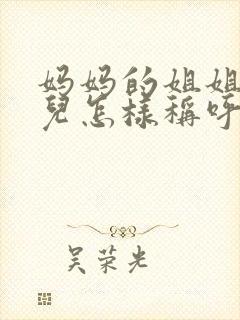 妈妈的姐姐
兒怎樣稱呼
吴荣光